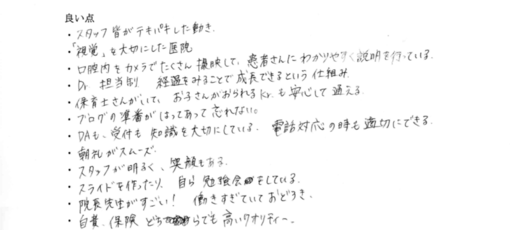 良い点
・スタッフ皆がテキパキした動き.
・「視覚」を大切にした医院
・口腔内をカメラでたくさん撮映して、患者さんにわかりやすく説明を行っている.
・Dr 担当制 経過をみることで成長できるという仕組み
・保育士さんがいて、お子さんがおられるKr.も安心して通える.
・ブログの準備がはってあって忘れない。
・DAも、受付も知識を大切にしている. 電話対応の時も適切にできる.
・朝礼がスムーズ.
・スタッフが明るく、笑顔もある.
・スライドを作ったり、自ら勉強会をしている.
・院長先生がすごい! 働きすぎていておどろき.
・自費、保険 どちらでも高いクオリティー.